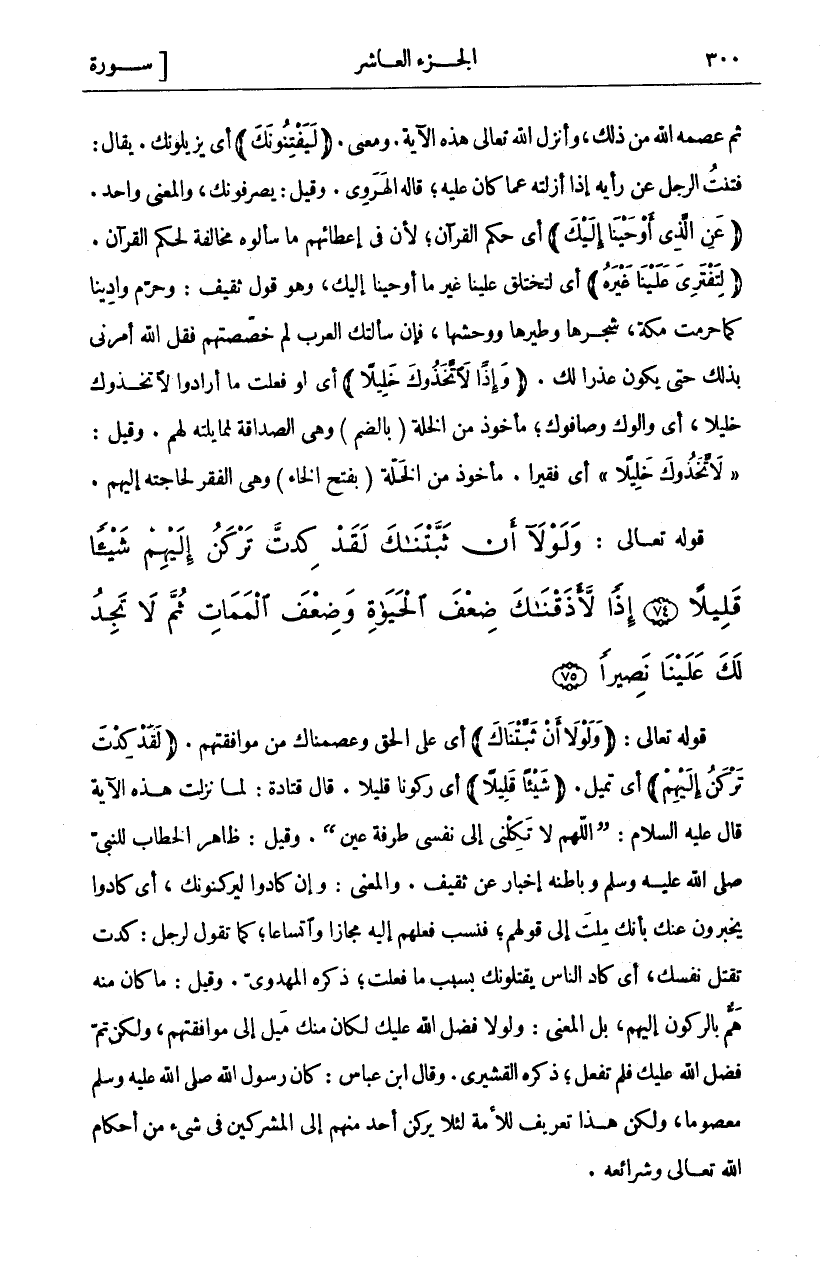 ٣٠٠ الجـزء العـاشر [ ســورة
ثم عصمه الله من ذلك، وأنزل الله تعالى هذه الآية. ومعنى. ﴿ لَيَفْتِنُونَكَ ﴾ أى يزيلونك. يقال:
فتنتُ الرجل عن رأيه إذا أزلته عما كان عليه؛ قاله الهَرَوِى. وقيل: يصرفونك، والمعنى واحد.
﴿ عَنِ الَّذِى أَوْحَيْنَا إِلَيْكَ ﴾ أى حكم القرآن؛ لأن فى إعطائهم ما سألوه مخالفة لحكم القرآن.
﴿ لِتَفْتَرِىَ عَلَيْنَا غَيْرَهُ ﴾ أى لتختلق علينا غير ما أوحينا إليك، وهو قول ثقيف: وحرّم وادِينا
كما حرمت مكة، شجـرها وطيرها ووحشها، فإن سألتك العرب لم خصّصتهم فقل الله أمرنى
بذلك حتى يكون عذرا لك. ﴿ وَإِذًا لَاتَّخَذُوكَ خَلِيلًا ﴾ أى او فعلت ما أرادوا لاتخـذوك
خليلا، أى والوك وصافوك؛ مأخوذ من الخلة (بالضم) وهى الصداقة لمايلته لهم. وقيل:
« لَاتَّخَذُوكَ خَلِيلًا » أى فقيرا. مأخوذ من الخَلّة (بفتح الخاء) وهى الفقر لحاجته إليهم.
قوله تعـالى: وَلَوْلَآ أَن ثَبَّتْنَـٰكَ لَقَدْ كِدتَّ تَرْكَنُ إِلَيْهِمْ شَيْـًٔا
قَلِيلًا ﴿٧٤﴾ إِذًا لَّأَذَقْنَـٰكَ ضِعْفَ ٱلْحَيَوٰةِ وَضِعْفَ ٱلْمَمَاتِ ثُمَّ لَا تَجِدُ
لَكَ عَلَيْنَا نَصِيرًا ﴿٧٥﴾
قوله تعالى: ﴿ وَلَوْلَا أَنْ ثَبَّتْنَاكَ ﴾ أى على الحق وعصمناك من موافقتهم. ﴿ لَقَدْ كِدْتَ
تَرْكَنُ إِلَيْهِمْ ﴾ أى تميل. ﴿ شَيْئًا قَلِيلًا ﴾ أى ركونا قليلا. قال قتادة: لمـا نزلت هـذه الآية
قال عليه السلام: ”اللّهم لا تَكِلْنى إلى نفسى طرفة عين“. وقيل: ظاهر الخطاب للنبىّ
صلى الله عليـه وسلم وباطنه إخبار عن ثقيف. والمعنى: وإن كادوا ليركنونك، أى كادوا
يخبرون عنك بأنك مِلتَ إلى قولهم؛ فنسب فعلهم إليه مجازا وٱتساعا؛ كما تقول لرجل: كدت
تقتل نفسك، أى كاد الناس يقتلونك بسبب ما فعلت؛ ذكره المهدوىّ. وقيل: ما كان منه
هَمٌّ بالركون إليهم، بل المعنى: ولولا فضل الله عليك لكان منك مَيل إلى موافقتهم، ولكن تمّ
فضل الله عليك فلم تفعل؛ ذكره القشيرى. وقال ابن عباس: كان رسول الله صلى الله عليه وسلم
معصوما، ولكن هـذا تعريف للأمة لئلا يركن أحد منهم إلى المشركين فى شىء من أحكام
الله تعـالى وشرائعه.